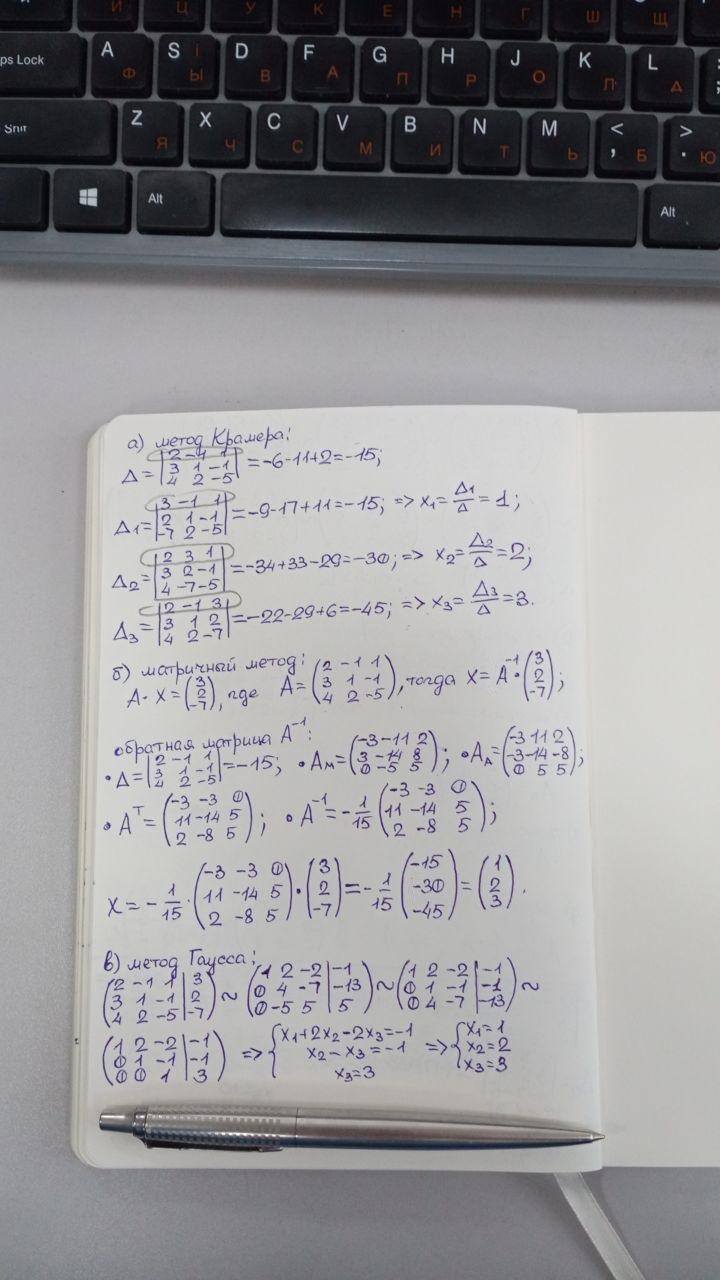 Й Ц У К Е Н Г Ш Щ
ps Lock A Ф S і Ы D В F А G П H Р J О K Л L Д ;
Shift Z Я X Ч C С V М B И N Т M Ь < , Б > . Ю
Alt Alt
а) метод Крамера:
Δ = |2 -1 1; 3 1 -1; 4 2 -5| = -6-11+2 = -15;
Δ1 = |3 -1 1; 2 1 -1; -7 2 -5| = -9-17+11 = -15; => x1 = Δ1/Δ = 1;
Δ2 = |2 3 1; 3 2 -1; 4 -7 -5| = -34+33-29 = -30; => x2 = Δ2/Δ = 2;
Δ3 = |2 -1 3; 3 1 2; 4 2 -7| = -22-29+6 = -45; => x3 = Δ3/Δ = 3.
б) матричный метод:
A · X = (3; 2; -7), где A = (2 -1 1; 3 1 -1; 4 2 -5), тогда X = A^-1 · (3; 2; -7);
обратная матрица A^-1:
• Δ = |2 -1 1; 3 1 -1; 4 2 -5| = -15; • Aм = (-3 -11 2; 3 -14 8; 0 -5 5); • AΔ = (-3 11 2; -3 -14 -8; 0 5 5);
• A^T = (-3 -3 0; 11 -14 5; 2 -8 5); • A^-1 = -1/15 (-3 -3 0; 11 -14 5; 2 -8 5);
X = -1/15 · (-3 -3 0; 11 -14 5; 2 -8 5) · (3; 2; -7) = -1/15 (-15; -30; -45) = (1; 2; 3).
в) метод Гаусса:
(2 -1 1 | 3; 3 1 -1 | 2; 4 2 -5 | -7) ~ (1 2 -2 | -1; 0 4 -7 | -13; 0 -5 5 | 5) ~ (1 2 -2 | -1; 0 1 -1 | -1; 0 4 -7 | -13) ~
(1 2 -2 | -1; 0 1 -1 | -1; 0 0 1 | 3) => {x1+2x2-2x3=-1; x2-x3=-1; x3=3 => {x1=1; x2=2; x3=3